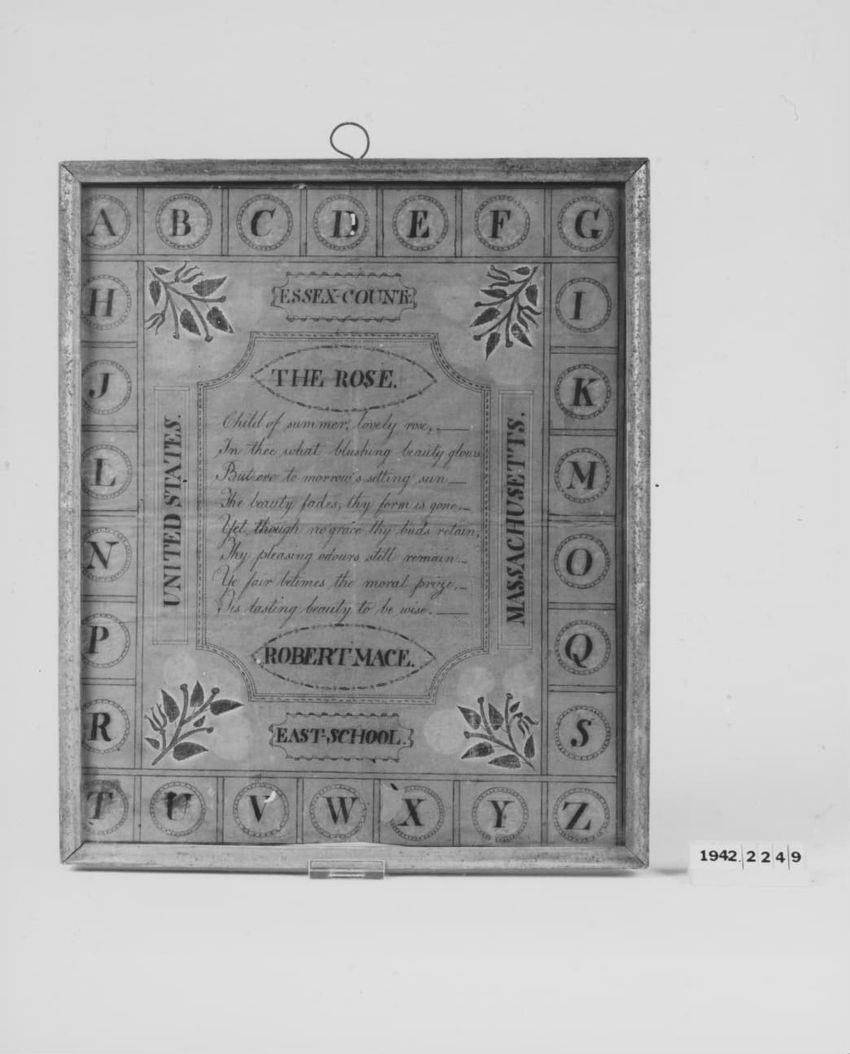 A B C D E F G
H I
J K
L M
N O
P Q
R S
T U V W X Y Z
ESSEX-COUNT
UNITED STATES.
MASSACHUSETTS.
THE ROSE.
Child of summer, lovely rose,
In thee what blushing beauty glows
But ere to morrow's setting sun
The beauty fades, thy form is gone.
Yet though no grace thy buds retain,
Thy pleasing odours still remain
Ye fair betimes the moral prize,
Tis lasting beauty to be wise.
ROBERT MACE.
EAST-SCHOOL.
1942.2249